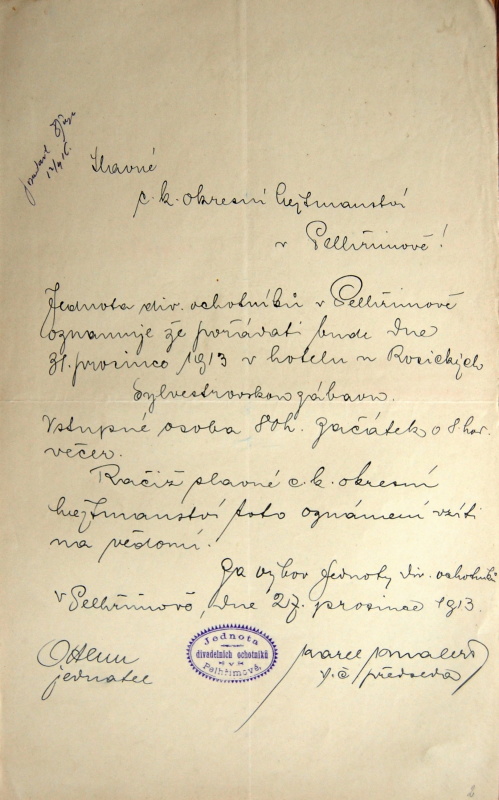 Slavné
c. k. okresní hejtmanství
v Pelhřimově!
Jednota div. ochotníků v Pelhřimově
oznamuje že pořádati bude dne
31. prosince 1913 v hotelu u Rosických
Sylvestrovskou zábavu.
Vstupné osoba 80h. Začátek o 8 hod.
večer.
Račiž slavné c. k. okresní
hejtmanství toto oznámení vzíti
na vědomí.
Za výbor Jednoty div. ochotníků
v Pelhřimově, dne 27. prosince 1913.
Jednota
divadelních ochotníků
v
Pelhřimově.
jednatel
předseda
2